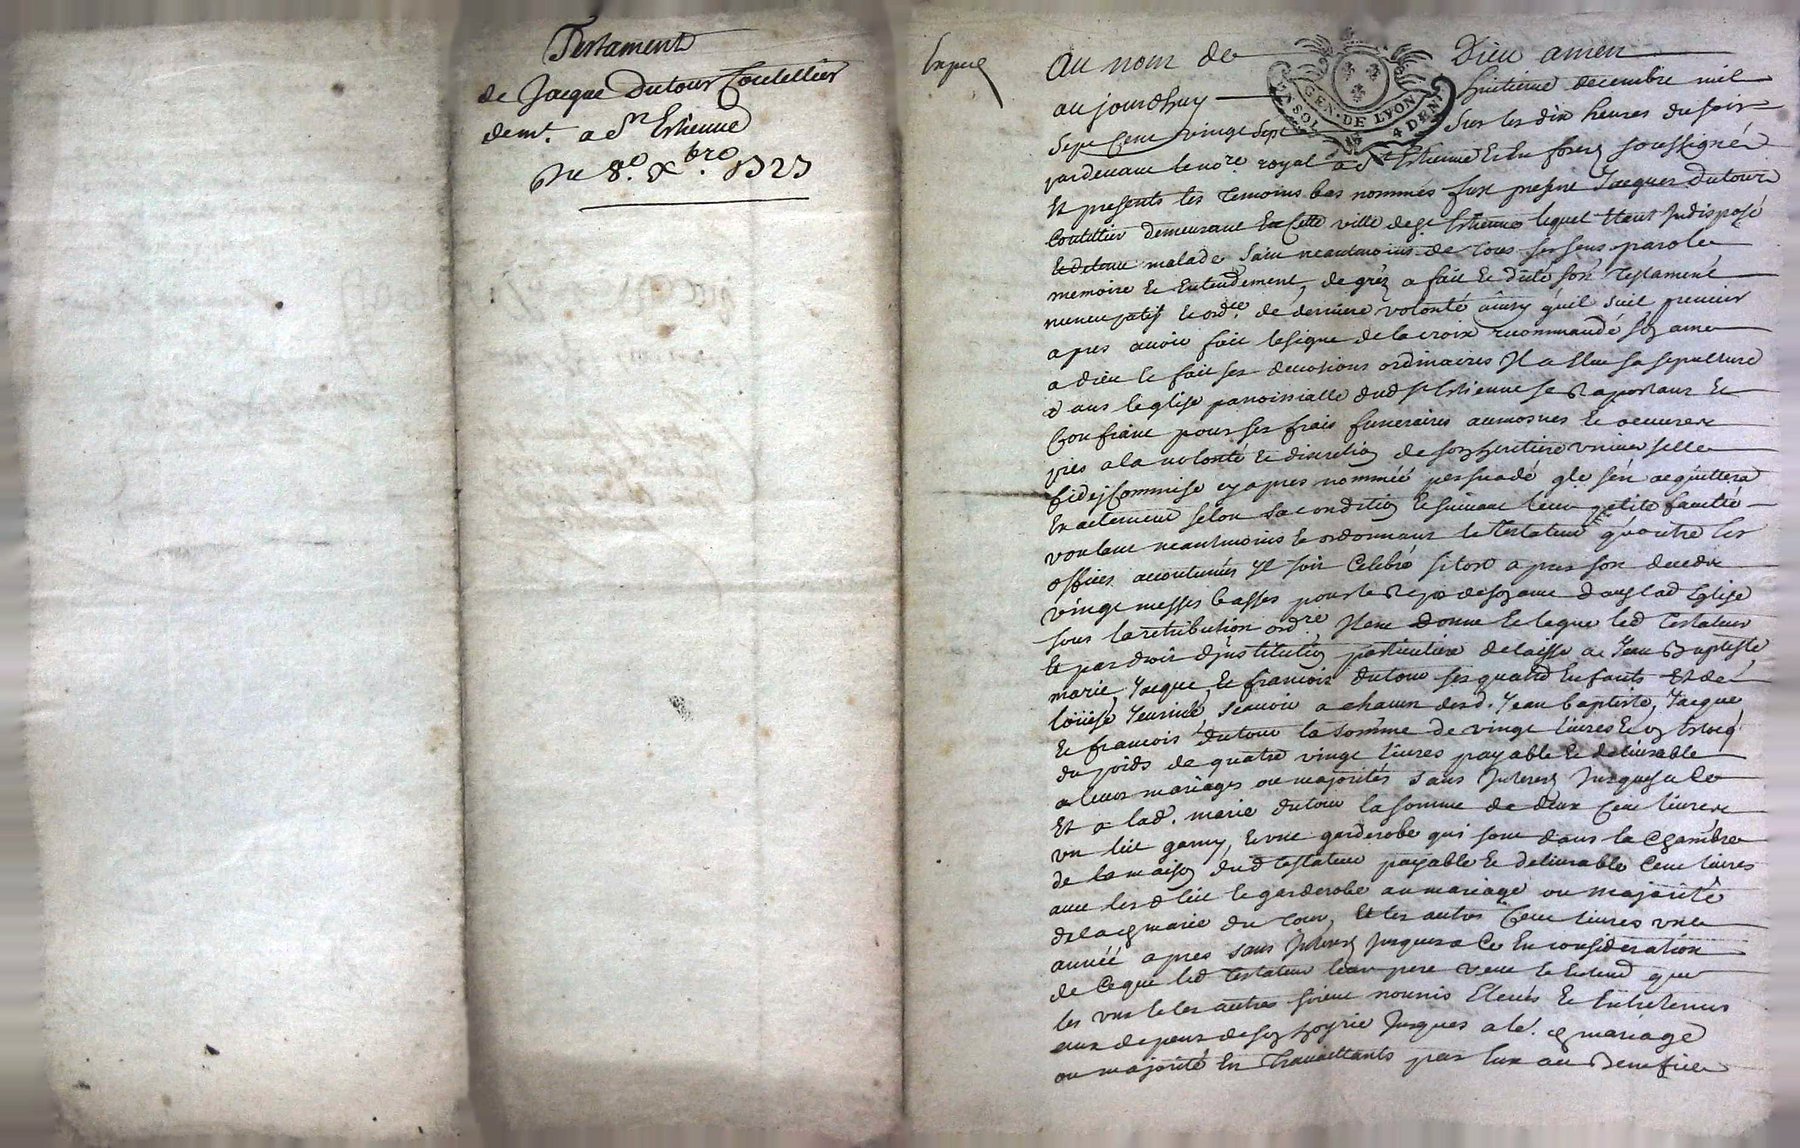 Testament
de Jacque Dutour Coutellier
demt. a St Estienne
Du 8e. Xbre 1727
Expné
au nom de Dieu amen
GEN. DE LYON
4 DEN
aujourdhuy huitieme decembre mil
sept cent vingt sept sur les dix heures du soir
pardevant le nore. royal a St Estienne en forez soussigné
Et presents les temoins bas nommés fut present Jacques Dutour
Coutellier demeurant en cette ville de St Estienne lequel Etant Indisposé
Et detenu malade sain neantmoins de tous ses sens parole
memoire et Entendement, de gréz a fait et dicté son testament
nuncupatif et ordre. de derniere volonté ainsy quil suit premier
apres avoir fait le signe de la croix recommandé son ame
a dieu et fait ses devotions ordinaires Il a Elu sa sepulture
dans leglise parroissialle dud St Estienne se raportant et
Confiant pour ses frais funeraires aumosnes et oeuvres
pies a la volonté et discretion de son heritiere universelle
fideicommise cy apres nommée persuadé qle sen acquittera
Exactement selon sa condition et suivant leur petite faculté
voulant neantmoins et ordonnant le testateur quoutre les
offices accoutumés Il soit Celebré sitost apres son deceds
vingt messes basses pour le repos de son ame dans lad Eglise
sous la retribution ordre Item donne et legue led testateur
Et par droit dinstitution particuliere delaisse a Jean Baptiste
marie, Jacque, et francois dutour ses quatre Enfants et de
loüise scavoir a chacun desd. Jean baptiste, Jacque
et francois dutour la somme de vingt livres et
du poids de quatre vingt livres payable et delivrable
a leurs mariages ou majorités sans Interest Jusques a ce
Et a lad. marie dutour la somme de deux cent livres
un lit garny, et une garderobe qui sont dans la chambre
de la maison dud testateur payable et delivrable Cent livres
avec lesd lit et garderobe au mariage ou majorité
de lad marie du tour, Et les autres Cent livres une
année apres sans Interest Jusques a Ce En consideration
de Ceque led testateur leur pere veut et Entend que
les uns et les autres soient nourris Eleués et Entretenus
aux depens de son hoyrie Jusques a le. mariage
ou majorité En travaillants par Eux au Benefice